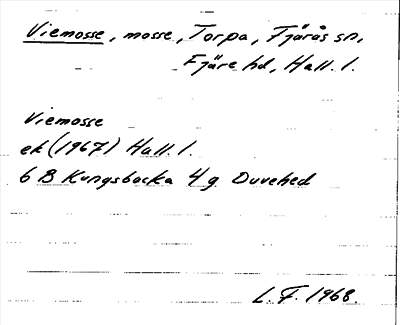 Viemosse, mosse, Torpa, Fjärås sn,
Fjäre hd, Hall. l.
Viemosse
ek (1967) Hall. l.
6 B Kungsbacka 4 g Duvehed
L. F. 1968.